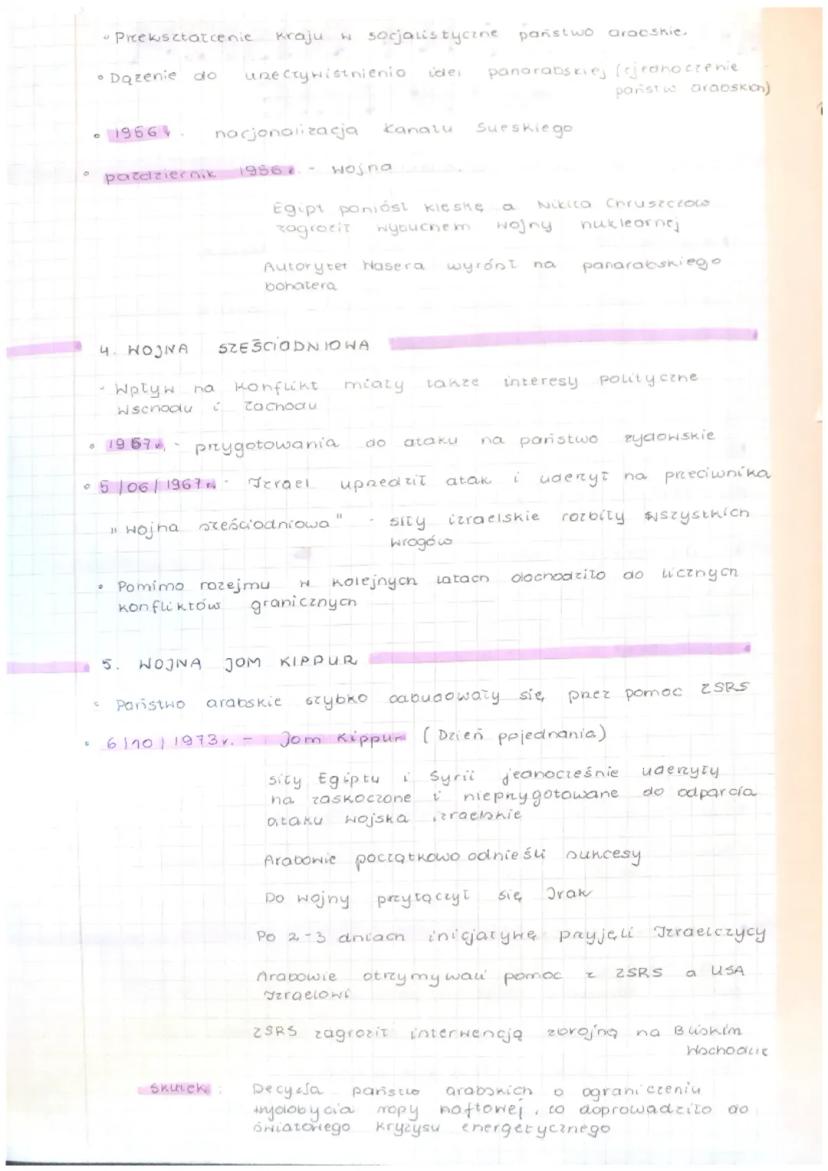 • Przekształcenie kraju w socjalistyczne państwo arabskie.
• Dążenie do urzeczywistnienia idei panarabskiej (zjednoczenie
państw arabskich)
• 1956r. nacjonalizacja Kanału Sueskiego
• październik 1956r. - wojna
Egipt poniósł klęskę a Nikita Chruszczow
zagroził wybuchem wojny nuklearnej
Autorytet Nasera wyrósł na panarabskiego
bohatera
4. WOJNA SZEŚCIODNIOWA
- Wpływ na konflikt miały także interesy polityczne
Wschodu i Zachodu
• 1967r. - przygotowania do ataku na państwo żydowskie
• 5/06/1967r. - Izrael uprzedził atak i uderzył na przeciwnika
"Wojna sześciodniowa" - siły izraelskie rozbiły wszystkich
wrogów
• Pomimo rozejmu w kolejnych latach dochodziło do licznych
konfliktów granicznych
5. WOJNA JOM KIPPUR
• Państwo arabskie szybko odbudowały się przez pomoc ZSRS
• 6/10/1973r. - Jom Kippur (Dzień pojednania)
siły Egiptu i Syrii jednocześnie uderzyły
na zaskoczone i nieprzygotowane do odparcia
ataku wojska izraelskie
Arabowie początkowo odnieśli sukcesy
Do wojny przyłączył się Irak
Po 2-3 dniach inicjatywę przyjęli Izraelczycy
Arabowie otrzymywali pomoc z ZSRS a USA
Izraelowi
ZSRS zagroził interwencją zbrojną na Bliskim
Wschodzie
Skutek: Decyzja państw arabskich o ograniczeniu
wydobycia ropy naftowej, co doprowadziło do
światowego kryzysu energetycznego